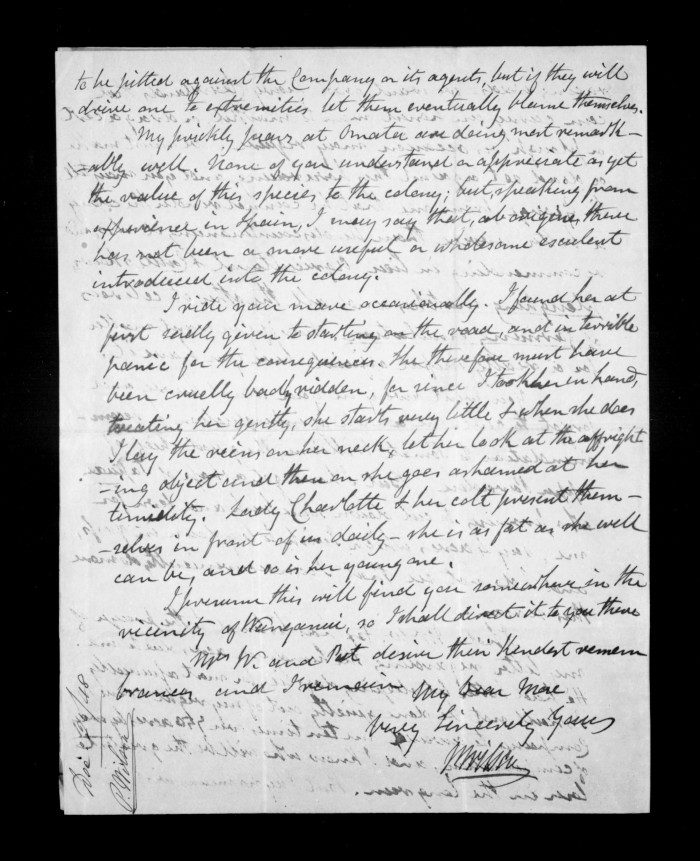 to be pitted against the Company or its agents, but if they will
drive one to extremities let them eventually blame themselves.
My prickly pears at Omata are doing most remark-
-ably well. None of you understand or appreciate as yet
the value of this species to the colony; but, speaking from
experience in Spain, I may say that, ab origine, there
has not been a more useful or wholesome esculent
introduced into the colony.
I ride your mare occasionally. I found her at
first sadly given to starting on the road, and in terrible
panic for the consequences. She therefore must have
been cruelly badly ridden, for since I took her in hand,
treating her gently, she starts very little & when she does
I lay the reins on her neck, let her look at the affright
-ing object and then on she goes ashamed at her
timidity. Lady Charlotte & her colt present them-
-selves in front of us daily - she is as fat as she well
can be, and so is her young one.
I presume this will find you somewhere in the
vicinity of Wanganui, so I shall direct it to you there
Mrs W. and Pat desire their kindest remem
brances and I remain My Dear
Very Sincerely Yours